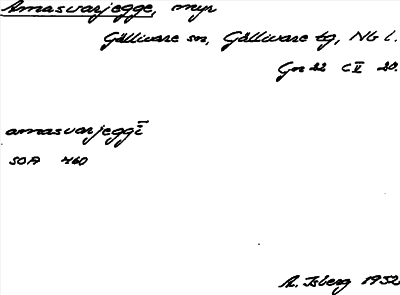 Amasvarjegge, myr
Gällivare sn, Gällivare tg, Nb l.
Gn 22 C II 20.
amasvarjeggī
SOA 460
A. Isberg 1952